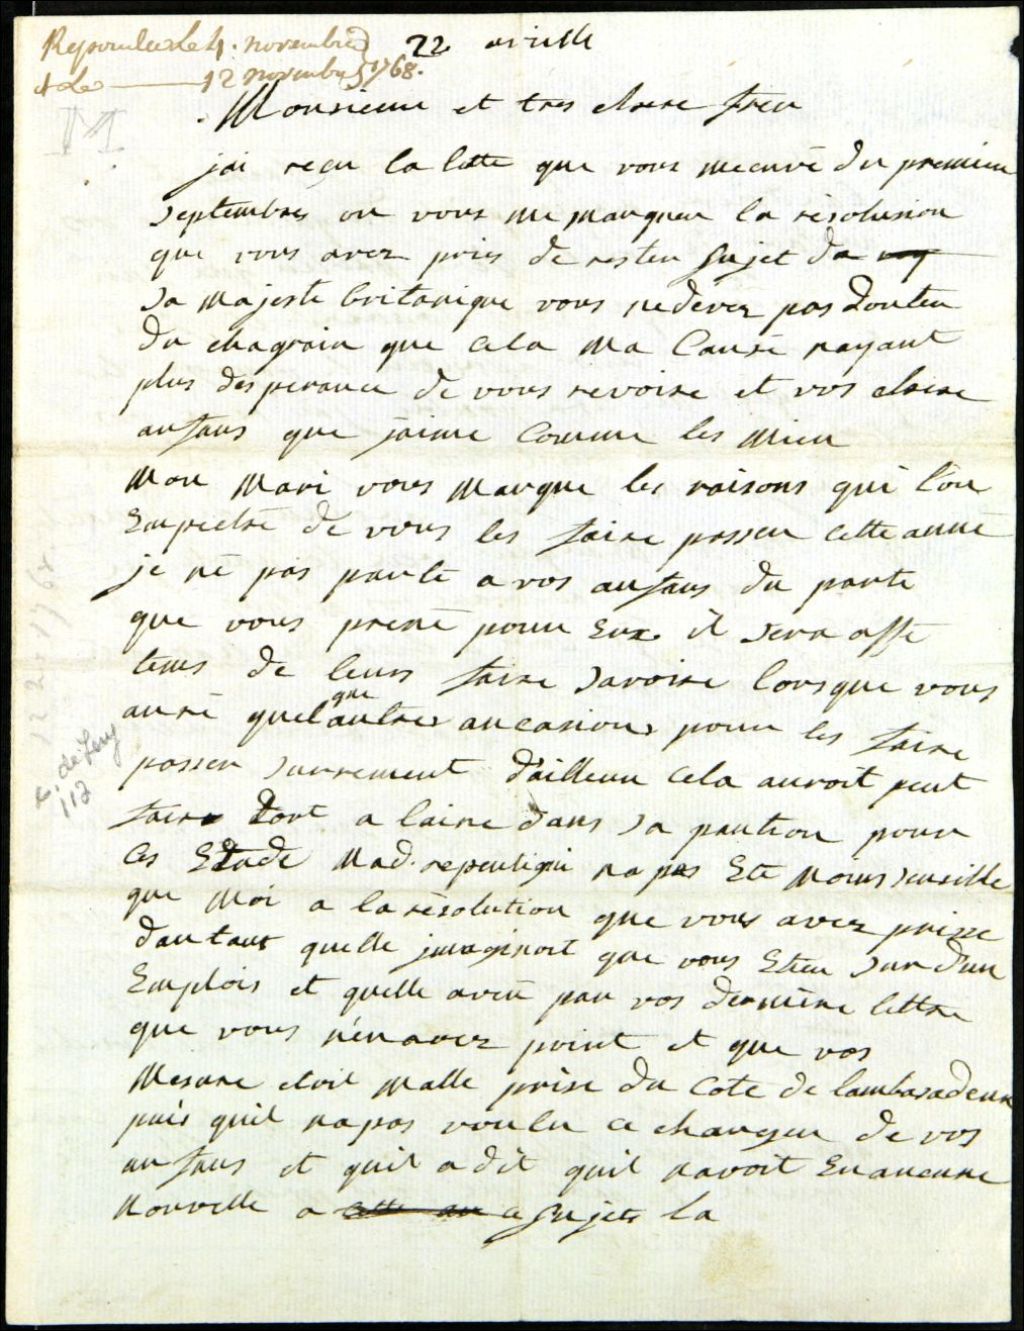 Repondue le 4. novembre
& Le 12 novembre 1768.
22 avrille
M
Monsieur et tres chere frer
jai reçu la lette que vous mecrivé du premier
septembres ou vous me marquer la résolusion
que vous avez pries de rester sujet de
sa majesté britanique vous ne devez pas douter
du chagrain que cela ma causé nayant
plus desperance de vous revoire et vos chere
anfans que jaime comme les mien
mon mari vous marque les raisons qui lon
empeché de vous les faire passer cette anné
je né pas parlé a vos anfans du parti
que vous prené pour eux. il sera assé
tems de leurs faire savoire lorsque vous
auré quelque autres aucasions pour les faire
passer surrement d'ailleur cela auroit peut
faire tort a laire dans sa pantion pour
ces Etude Mad. repentigni na pas Eté moins sensible
que moi a la résolution que vous avez prisse
dautant quelle jmaginoit que vous Etier sur dun
Emplois et quelle a veu par vos derniére lettre
que vous n'en avez point et que vos
mesure etoit malle prise du coté de lambasadeur
puis quil na pas voulu ce charger de vos
anfans et quil a dit quil navoit En aucune
nouvelle a ce sujets la
de Lery
112